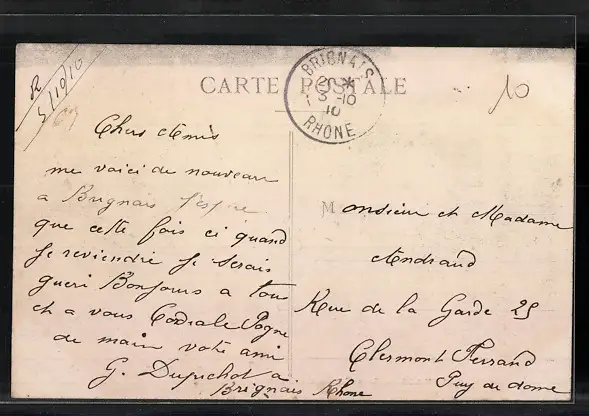 R
5/10/10
CARTE POSTALE
BRIGNAIS
3-10
10
RHONE
10
Chers Amis
me voici de nouveau
a Brignais j'espere
que cette fois ci quand
je reviendré je serais
gueri Bonjours a tous
et a vous Cordiale Pogne
de main votre ami
G. Dupuchot a
Brignais Rhone
Monsieur et Madame
Andraud
Rue de la Garde 25
Clermont Ferrand
Puy de dome